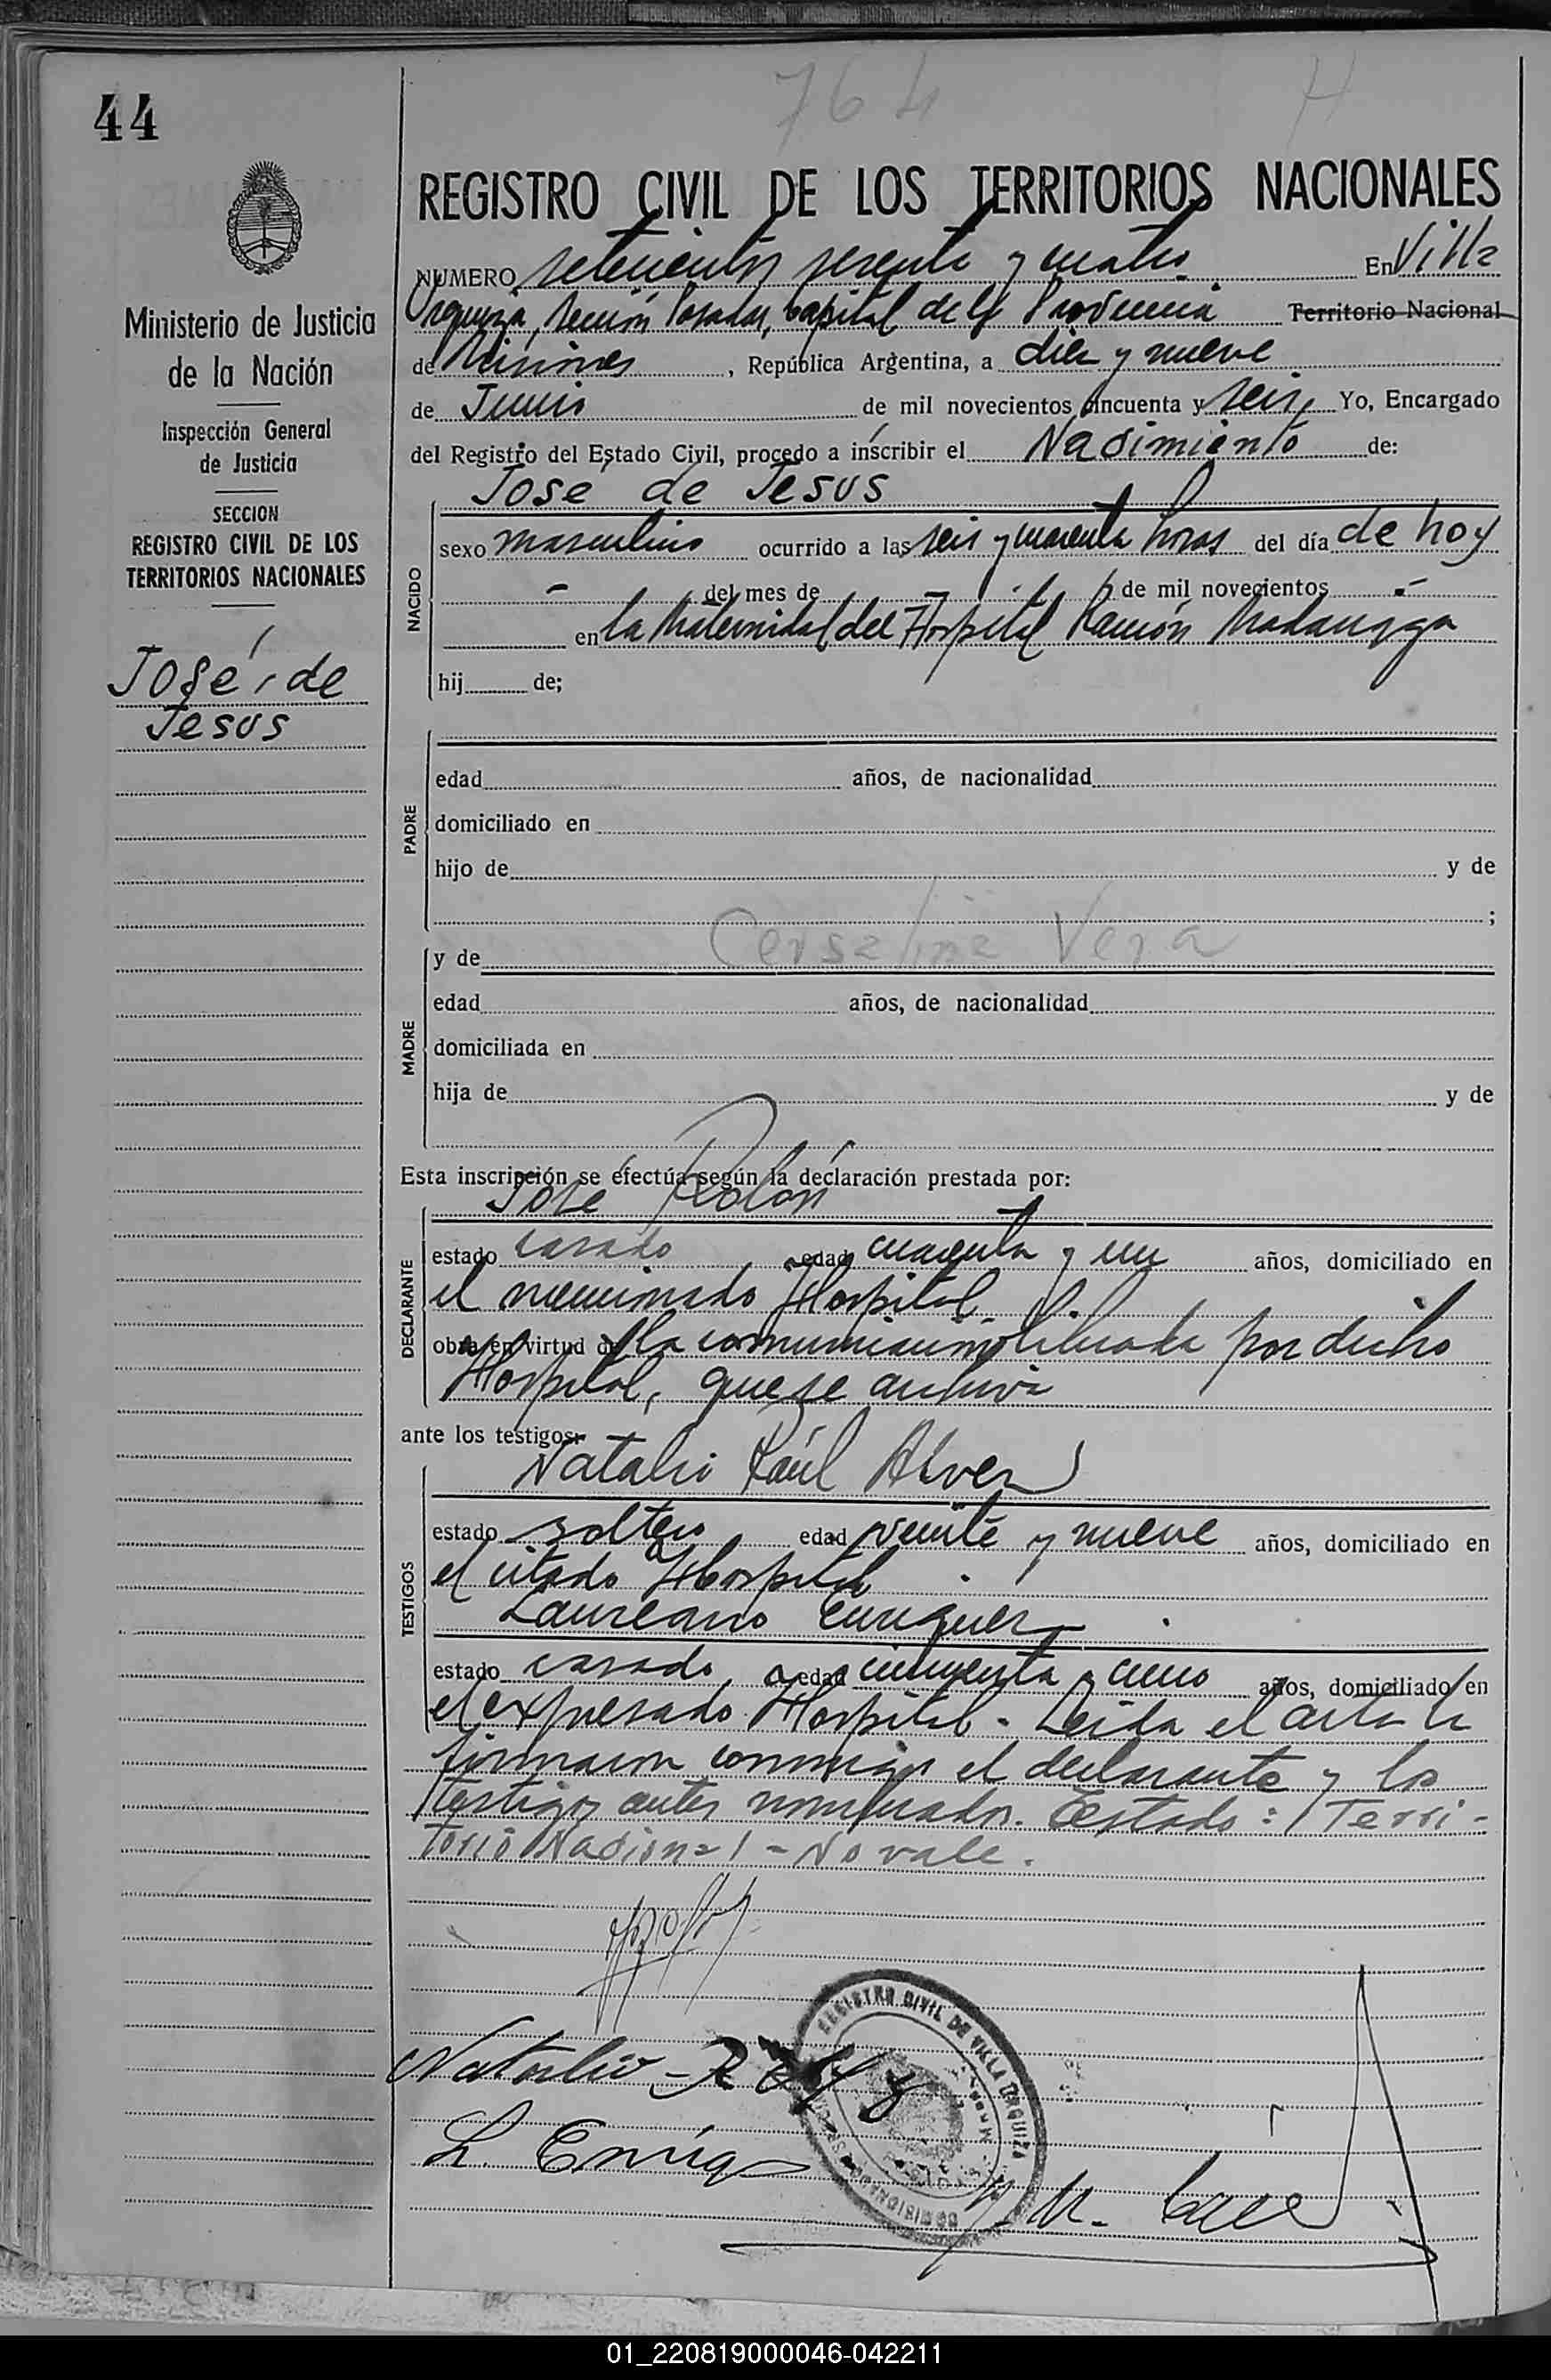 764
44
REGISTRO CIVIL DE LOS TERRITORIOS NACIONALES
NUMERO setecientos sesenta y cuatro En Villa
Urquiza, Sección Posadas, Capital de la Provincia Territorio Nacional
de Misiones, República Argentina, a diez y nueve
de Junio de mil novecientos cincuenta y seis, Yo, Encargado
del Registro del Estado Civil, procedo a inscribir el Nacimiento de:
José de Jesus
NACIDO
sexo masculino ocurrido a las seis y cuarenta horas del día de hoy
- del mes de - de mil novecientos -
en la Maternidad del Hospital Ramón Madariaga
hij de;
Ministerio de Justicia
de la Nación
Inspección General
de Justicia
SECCION
REGISTRO CIVIL DE LOS
TERRITORIOS NACIONALES
José, de
Jesus
PADRE
edad años, de nacionalidad
domiciliado en
hijo de y de
;
MADRE
y de Vera
edad años, de nacionalidad
domiciliada en
hija de y de
Esta inscripción se efectúa según la declaración prestada por:
José Rolón
DECLARANTE
estado casado edad cuarenta y un años, domiciliado en
el mencionado Hospital
obra en virtud de la comunicación por dicho
Hospital, que se archiva
ante los testigos:
Natalio Raúl Alvez
TESTIGOS
estado soltero edad veinte y nueve años, domiciliado en
el citado Hospital
Laureano Enriquez
estado casado, edad cincuenta y cinco años, domiciliado en
el expresado Hospital - Leída el acta la
firmaron conmigo el declarante y los
testigos antes nombrados. Testado: Terri-
torio Nacional - No vale.
Natalio R
L. Enriq
REGISTRO CIVIL DE VILLA URQUIZA
01_220819000046-042211